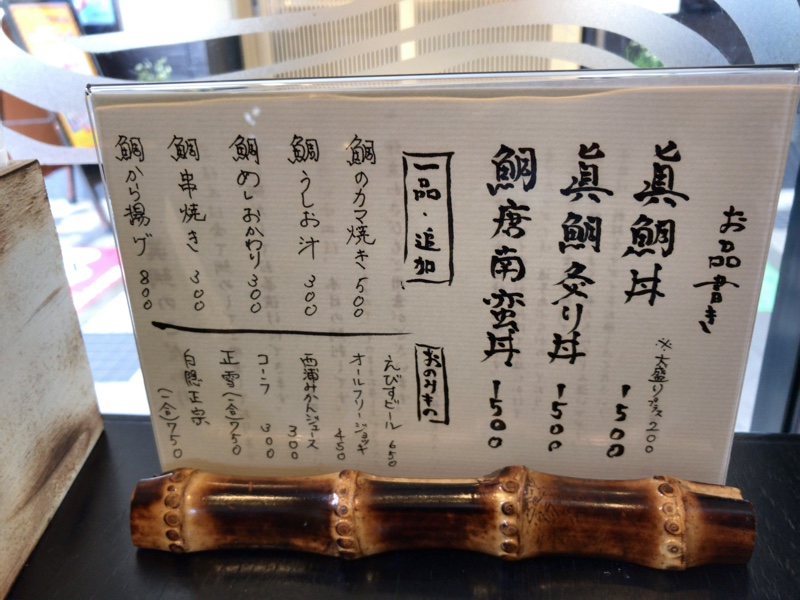 お品書き
眞鯛丼 1500
※大盛りプラス200
眞鯛炙り丼 1500
鯛唐南蛮丼 1500
一品・追加
鯛のカマ焼き 500
鯛うしお汁 300
鯛めしおかわり 300
鯛串焼き 300
鯛から揚げ 800
おのみもの
えびすビール 650
オールフリージョッキ 450
西浦みかんジュース 300
コーラ 300
正雪(一合)750
白隠正宗(一合)750